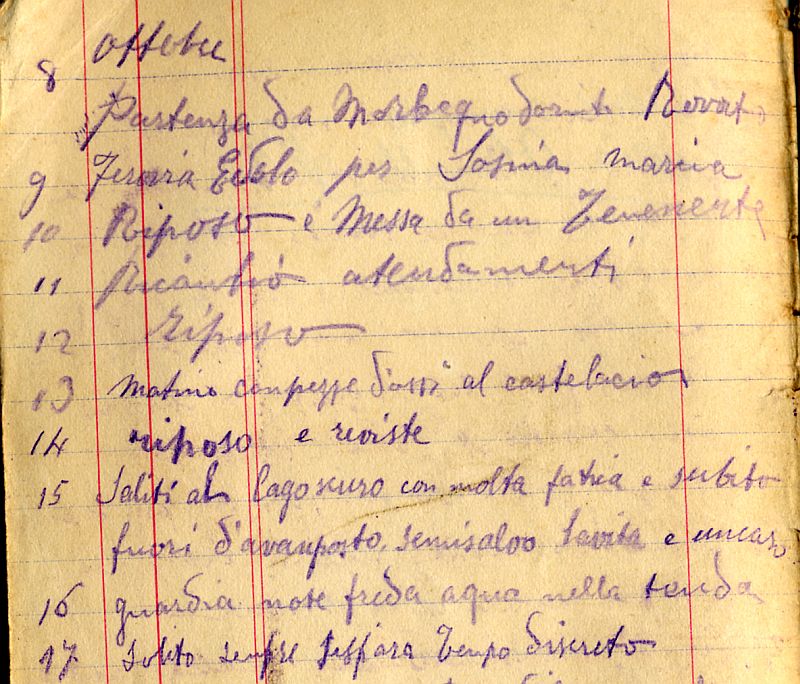 ottobre
8
Partenza da Morbegno Rovato
9 Edolo per marcia
10 Riposo e Messa da un Tenenente
11 Ricanbio atendamenti
12 riposo
13 Matino con pezze d'assi al castelacio
14 riposo e reviste
15 Saliti al lagoscuro con molta fatica e subito
fuori d'avanposto. se mi salvo la vita e un caso
16 guardia note freda aqua nella tenda
17 Solito senpre si spara Tempo discreto